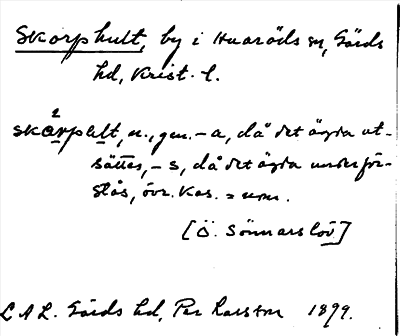 Skorphult, by i Huaröds sn, Gärds
hd, Krist. l.
skårpelt, n., gen. -a, då det ägda ut-
sättes, -s, då det ägda underför-
stås, övr. kas. = nom.
[Ö. Sönnarslöv]
LAL. Gärds hd, Per Larsson 1899.